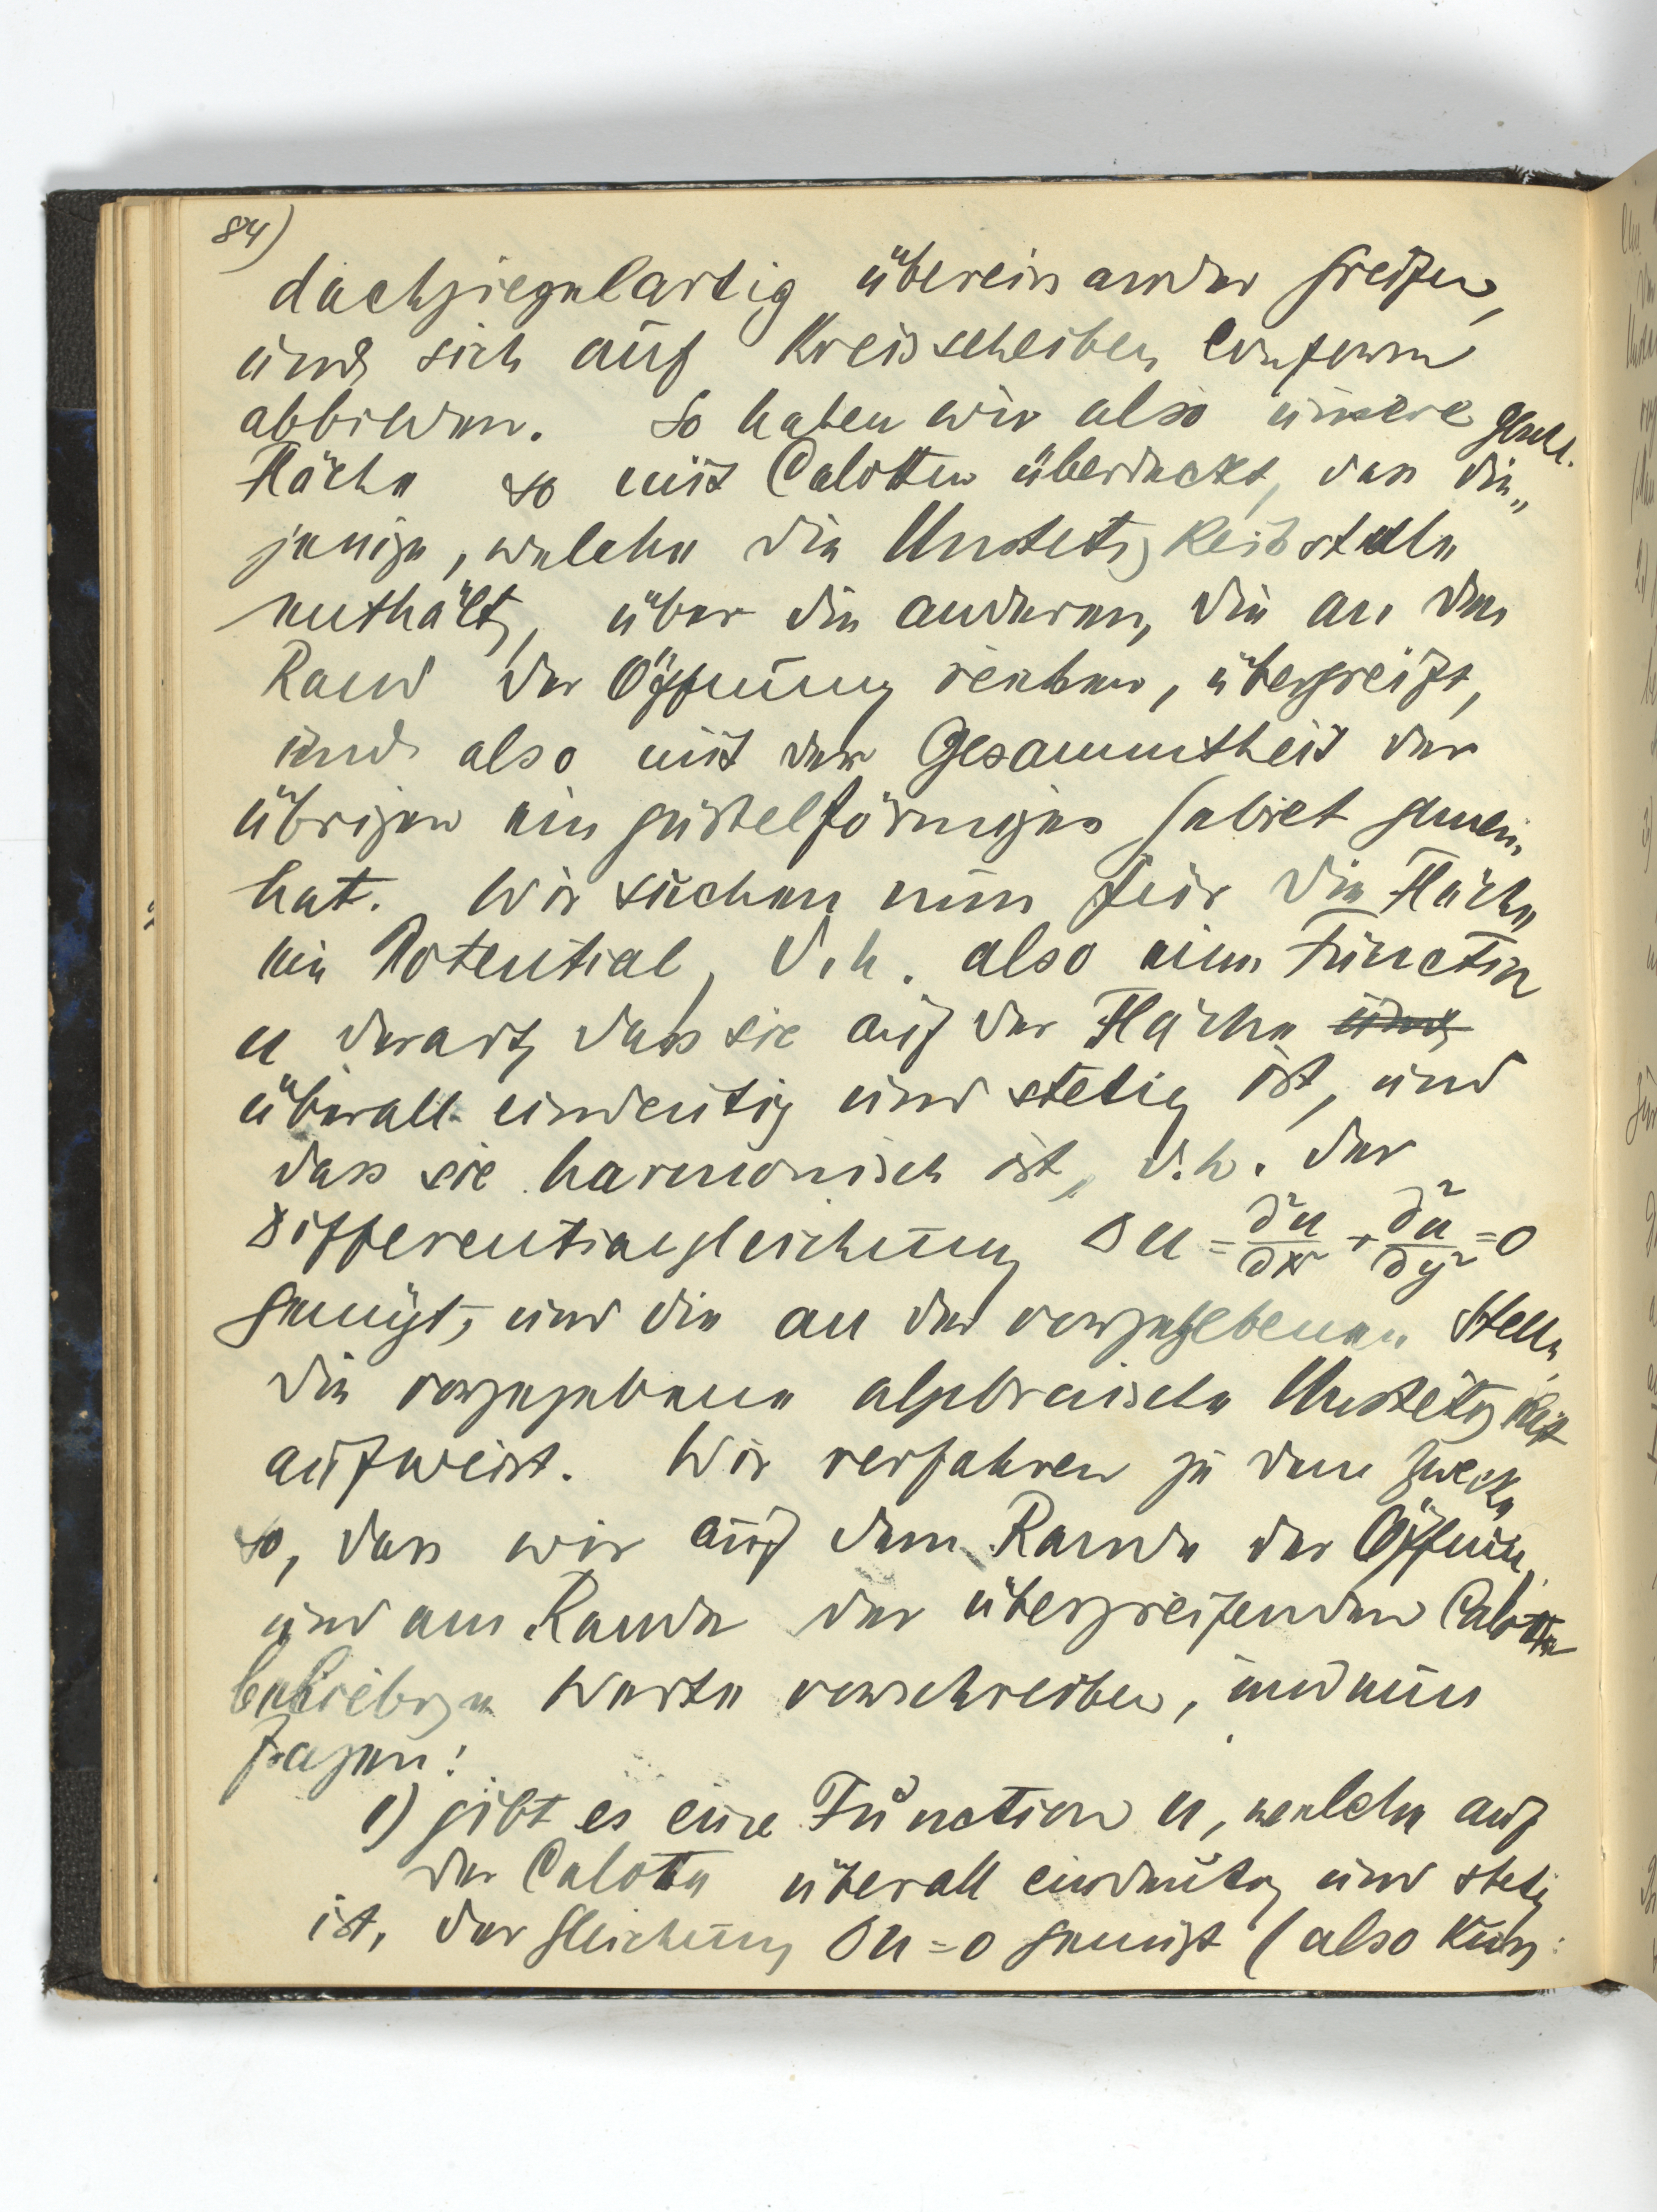 84)
dachziegelartig übereinander greifen,
und sich auf Kreisscheiben conform
abbilden. So haben wir also unsere geschl.
Fläche so mit Calotten überdeckt, dass die„
jenige, welche die Unstetigkeitsstelle
enthält, über die anderen, die an den
Rand der Öffnung reichen, übergreift,
und also mit der Gesammtheit der
übrigen ein gürtelförmiges Gebiet gemein
hat. Wir suchen nun für die Fläche
ein Potential, d.h. also eine Function
u derart, dass sie auf der Fläche und
überall eindeutig und stetig ist, und
dass sie harmonisch ist, d.h. der
Differentialgleichung Δu = ∂²u/∂x² + ∂²u/∂y² = 0
genügt, und die an der vorgegebenen Stelle
die vorgegebene algebraische Unstetigkeit
aufweist. Wir verfahren zu dem Zwecke
so, dass wir auf dem Rande der Öffnung
und am Rande der übergreifenden Calotte
beliebige Werte vorschreiben, und nun
fragen:
1) gibt es eine Function u, welche auf
der Calotte überall eindeutig und stetig
ist, der Gleichung Δu = 0 genügt (also